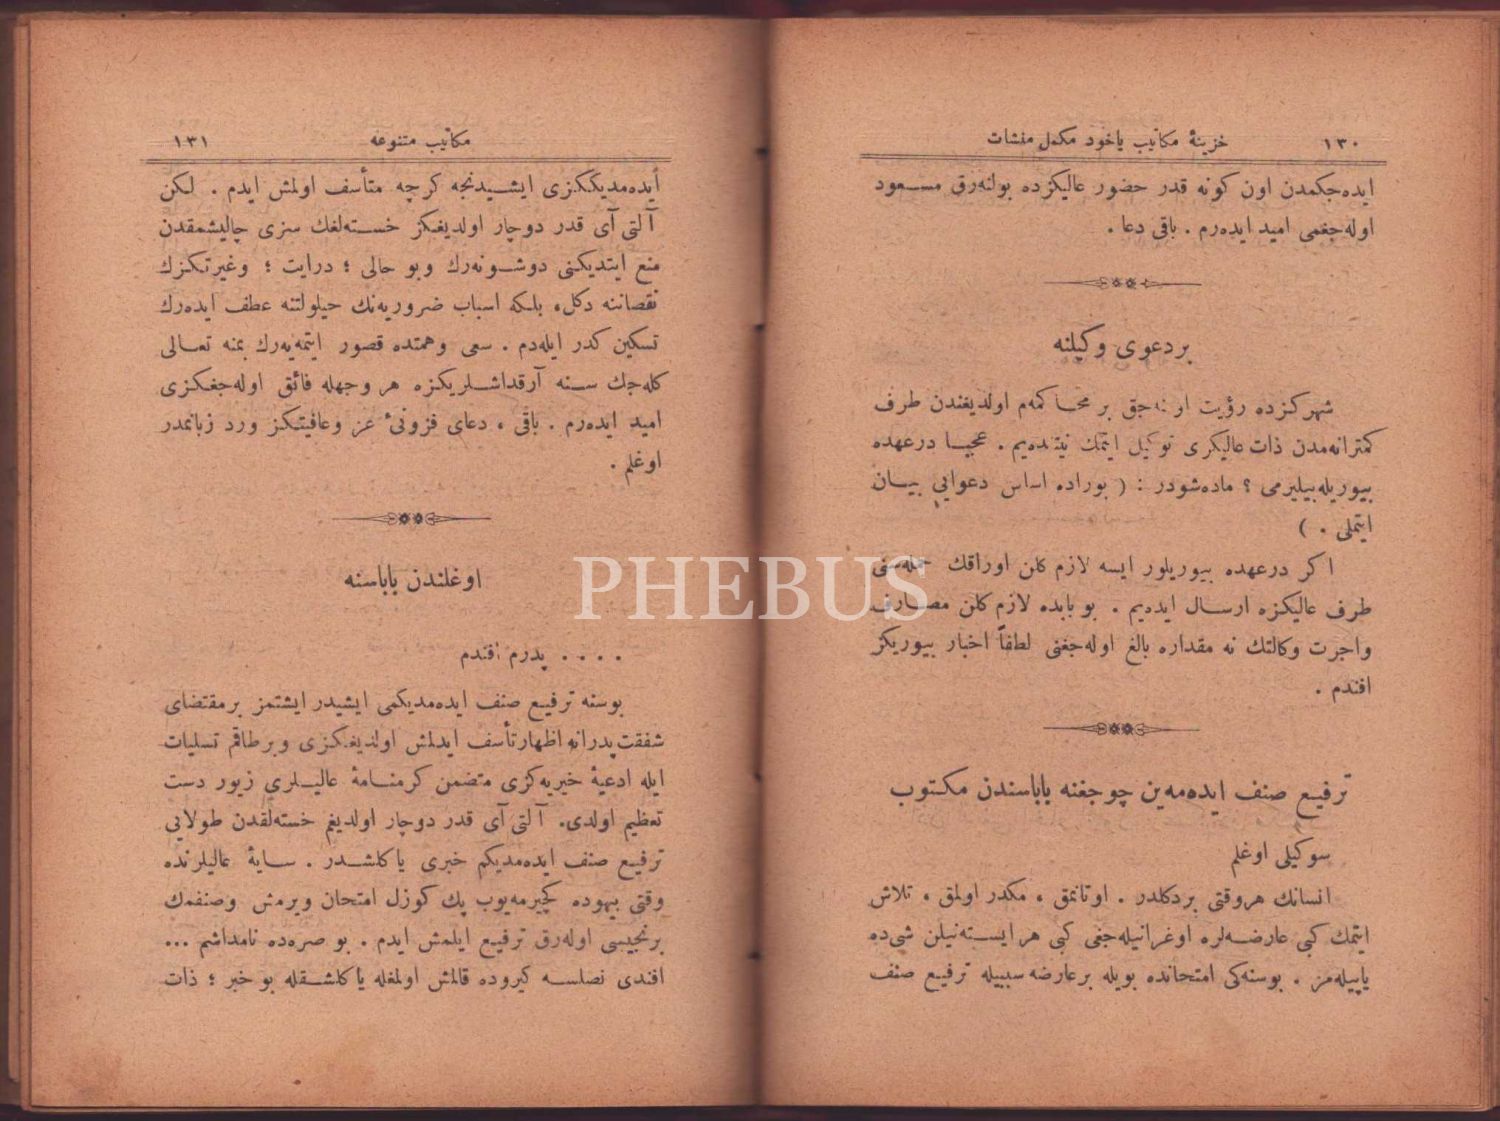 ١٣٠ خزینهٔ مکاتیب یاخود مکمل منشات
ایده‌جکمدن اون کونه قدر حضور عالیکزده بولنه‌رق مسـعود
اوله‌جغمی امید ایده‌رم . باقی دعا .
بر دعوی وکیلنه
شهرکزده رؤیت اولنه‌جق بر محاکمه‌م اولدیغندن طرف
کمترانه‌مدن ذات عالیکزی توکیل ایتمك نیتنده‌یم . عجبـا درعهده
بیوریله‌بیلیرمی ؟ ماده‌شودر : ( بوراده اساس دعوایی بیـان
ایتملی . )
اکر درعهده بیوریلور ایسه لازم کلن اوراقك جمله‌سنی
طرف عالیکزه ارسـال ایده‌یم . بو بابده لازم کلن مصـارف
واجرت وکالتك نه مقداره بالغ اوله‌جغنی لطفاً اخبار بیوریکز
افندم .
ترفیـع صنف ایده‌مه‌ین چوجغنه باباسندن مکتوب
سوکیلی اوغلم
انسانك هروقتی بردکلدر . اوتانمق ، مکدر اولمق ، تلاش
ایتمك کبی عارضـه‌لره اوغرانیله‌جغی کبی هر ایسـته‌نیلن شی‌ده
یاپیله‌مز . بوسنه‌کی امتحانده بویله برعارضه سببیله ترفیـع صنف
مکاتیب متنوعه ١٣١
ایده‌مدیککزی ایشـیدنجه کرچه متأسف اولمش ایدم . لـکن
آلتی آی قدر دوچار اولدیغکز خسـته‌لغك سزی چالیشمقدن
منع ایتدیکنی دوشـونه‌رك وبو حالی ؛ درایت ؛ وغیرتکزك
نقصاننه دکل، بلـکه اسباب ضروریه‌نك حیلولتنه عطف ایده‌رك
تسکین کدر ایله‌دم . سعی وهمتده قصور ایتمه‌یه‌رك بمنه تعـالی
کله‌جك سـنه آرقداشـلریکزه هر وجهله فائق اوله‌جغکزی
امید ایده‌رم . باقی ، دعای فزونیٔ عز وعافیتکز ورد زبانمدر
اوغلم .
اوغلندن باباسنه
. . . . پدرم افندم
بوسنه ترفیـع صنف ایده‌مدیکمی ایشیدر ایشتمز برمقتضای
شفقت پدرانه اظهارتأسف ایدلمش اولدیغکزی وبرطاقم تسلیات
ایله ادعیهٔ خیریه‌کزی متضمن کرمنـامهٔ عالیـلری زیور دست
تعظیم اولدی. آلتی آی قدر دوچار اولدیغم خسته‌لقدن طولایی
ترفیـع صنف ایده‌مدیکم خبری یاکلشـدر . سـایهٔ عالیلرنده
وقتی بیهوده کچیرمه‌یوب پك کوزل امتحان ویرمش وصنفمك
برنجیسی اوله‌رق ترفیـع ایلمش ایدم . بو صره‌ده نامداشم ...
افندی نصلسـه کیروده قالمش اولمغله یاکلشـقله بو خبر ؛ ذات
PHEBUS